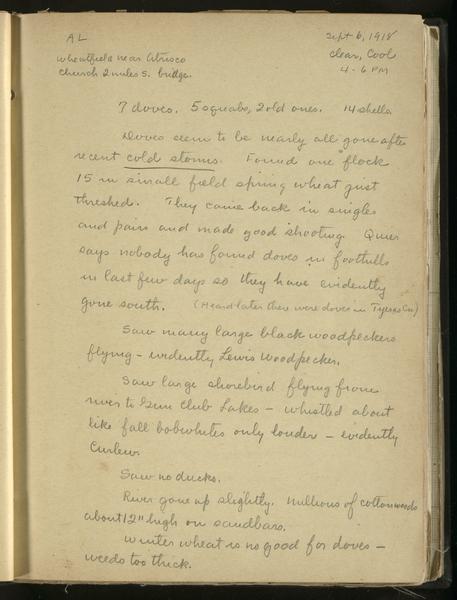 AL
Sept 6, 1918
wheatfield near Atrisco
clear, Cool
church 2 miles S. bridge.
4-6 PM
7 doves. 5 squabs, 2 old ones. 14 shells
Doves seem to be nearly all gone after
recent cold storms. Found one "flock
15 in small field spring wheat just
threshed. They came back in singles
and pairs and made good shooting. Quier
says nobody has found doves in foothills
in last few days so they have evidently
gone south. (Heard later there were doves in Tijeras Cn)
Saw many large black woodpeckers
flying - evidently Lewis Woodpecker.
Saw large shorebird flying from
river to Gun Club Lakes - whistled about
like fall bobwhites only louder - evidently
Curlew.
Saw no ducks.
River gone up slightly. Millions of cottonwoods
about 12" high on sandbars.
Winter wheat is no good for doves -
weeds too thick.